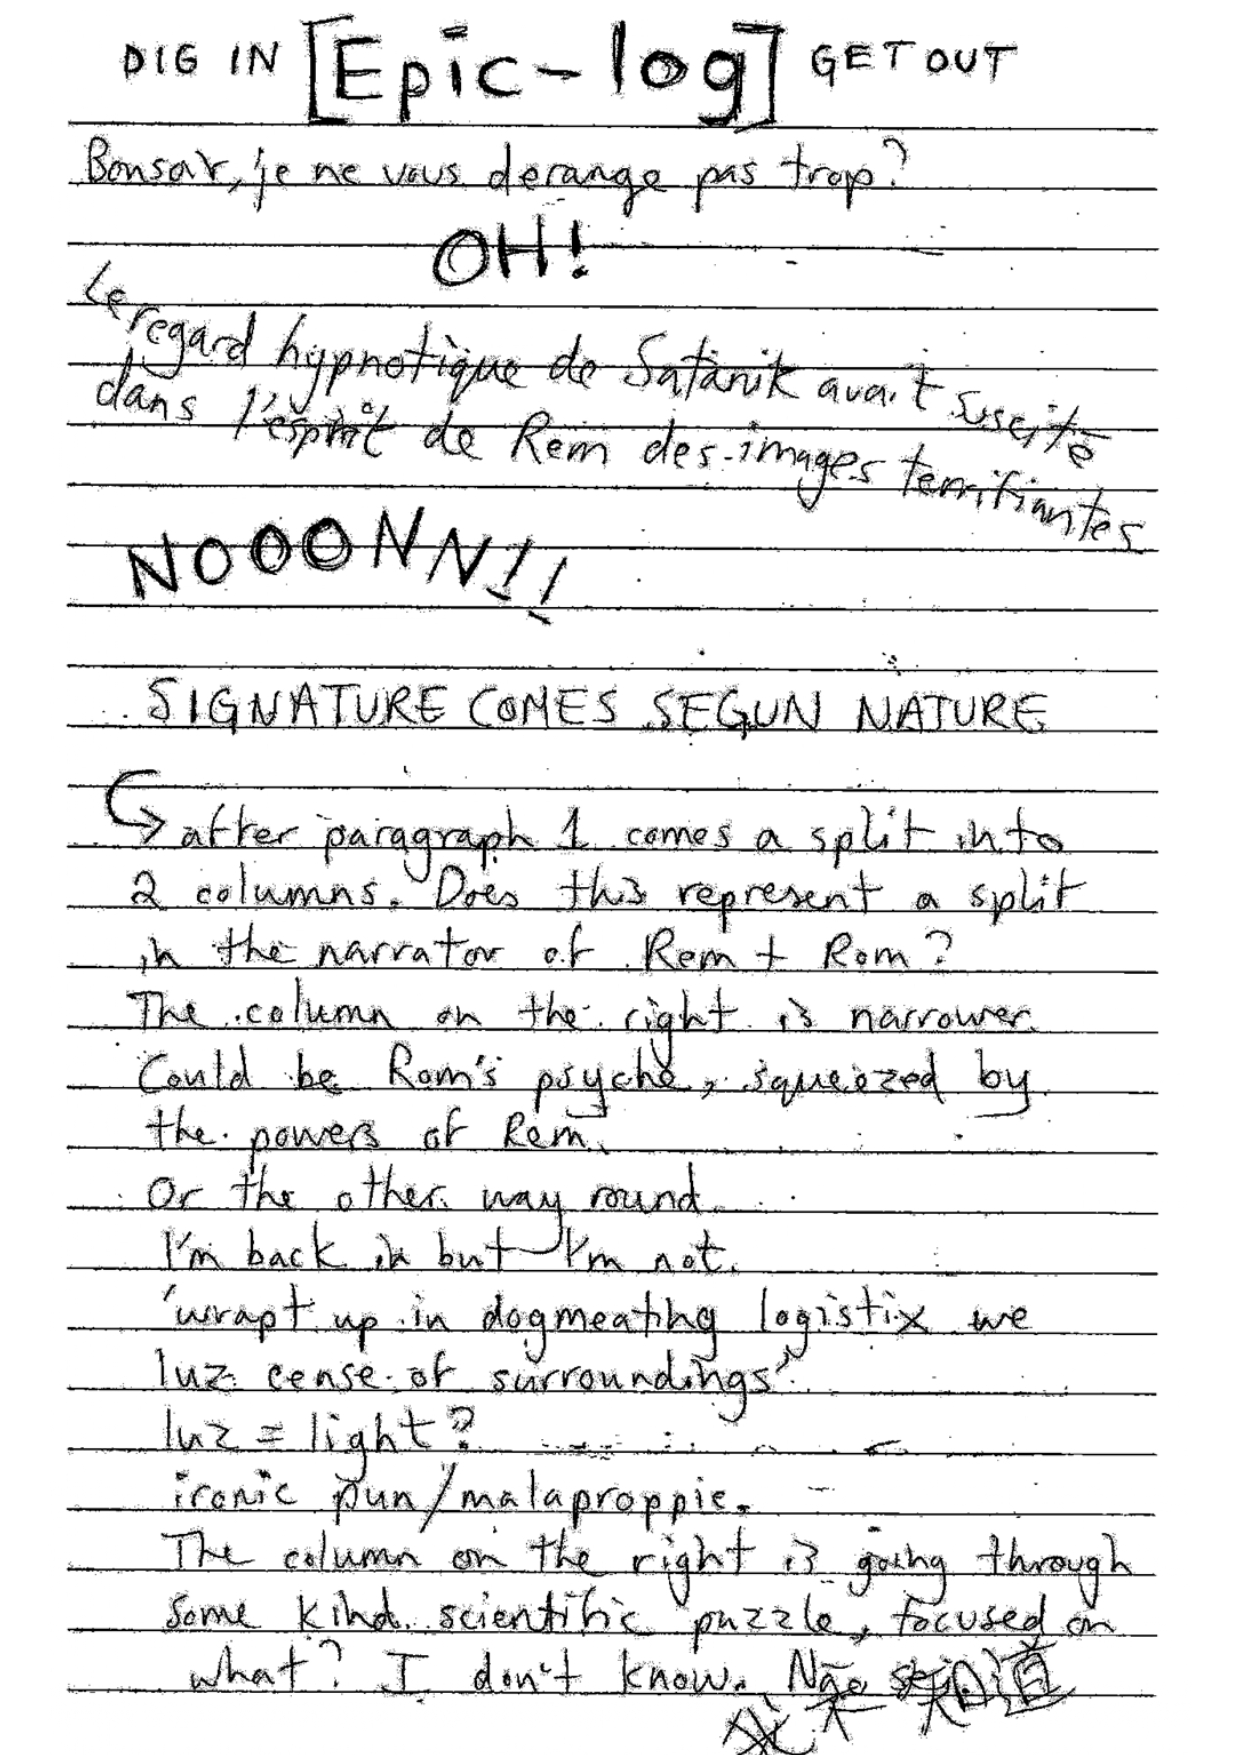 DIG IN [Epic-log] GET OUT
Bonsoir, je ne vous derange pas trop?
OH!
Le regard hypnotique de Satanik avait suscité
dans l'esprit de Rem des images terrifiantes
NOOONN!!
SIGNATURE COMES SEGUN NATURE
↳ after paragraph 1 comes a split into
2 columns. Does this represent a split
in the narrator of Rem + Rom?
The column on the right is narrower.
Could be Rom's psyche, squeezed by
the powers of Rem.
Or the other way round.
I'm back in but I'm not.
'wrapt up in dogmeating logistix we
luz cense of surroundings'.
luz = light?
ironic pun/malaproppie.
The column on the right is going through
some kind scientific puzzle, focused on
what? I don't know. Não
我不知道